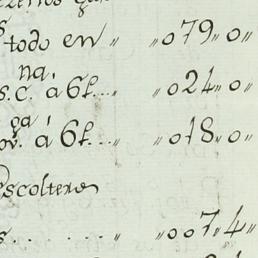 todo en „ „079„0„
na.
s.c. a 6f... „024„0„
ga
ov. á 6f...„ „018„0„
escoltero
s... ....„ „007„4„